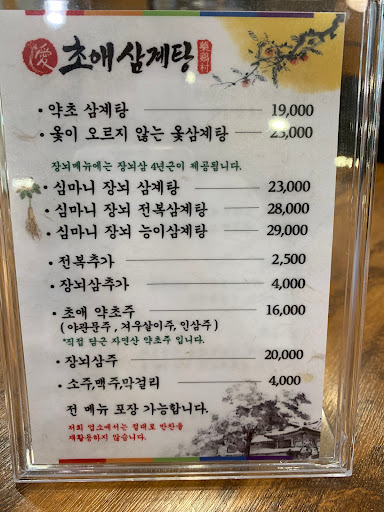 愛 초애삼계탕 藥鷄村
• 약초 삼계탕 19,000
• 옻이 오르지 않는 옻삼계탕 23,000
장뇌메뉴에는 장뇌삼 4년근이 제공됩니다.
• 심마니 장뇌 삼계탕 23,000
• 심마니 장뇌 전복삼계탕 28,000
• 심마니 장뇌 능이삼계탕 29,000
• 전복추가 2,500
• 장뇌삼추가 4,000
• 초애 약초주 16,000
( 야관문주 , 겨우살이주, 인삼주 )
*직접 담근 자연산 약초주 입니다.
• 장뇌삼주 20,000
• 소주,맥주,막걸리 4,000
전 메뉴 포장 가능합니다.
저희 업소에서는 절대로 반찬을
재활용하지 않습니다.